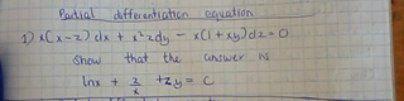 Partial differentiation equation
1) x(x-z)dx + x²zdy - x(1+xy)dz=0
Show that the answer is
lnx + z/x + zy = C